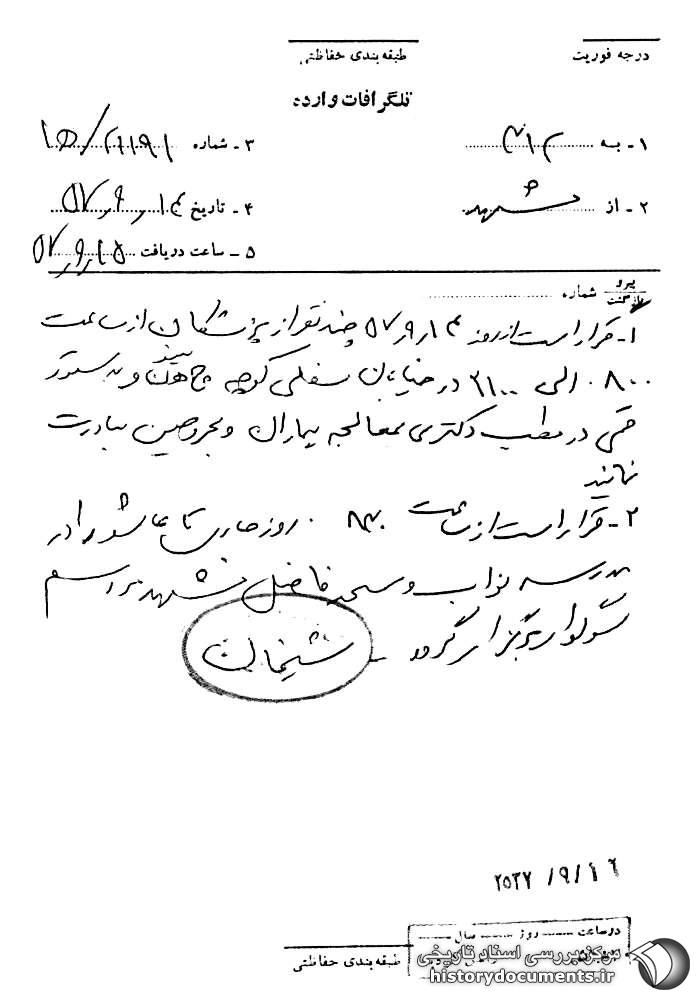 درجه فوریت
طبقه‌بندی حفاظتی
تلگرافات وارده
۱ - به ۳۱۲
۳ - شماره ۱۵/۲۱۱۹۱
۲ - از مشهد
۴ - تاریخ ۱۴ر۹ر۵۷
۵ - ساعت دریافت ۱۵ر۹ر۵۷
پیرو
بازگشت
شماره
۱- قرار است از روز ۱۴ر۹ر۵۷ چند نفر از پزشکان از ساعت
۰۸۰۰ الی ۲۱۰۰ در خیابان سفلی کوچه و به دستور
قمی در مطب دکتری بمعالجه بیماران و مجروحین مبادرت
نمایند
۲- قرار است از ساعت ۰۸۳۰ روز جاری تا عاشورا در
مدرسه نواب و مسجد فاضل مشهد مراسم
سوگواری برگزار گردد - شیخان
۲۵۳۷ /۹/۱۶
در ساعت روز سال
طبقه‌بندی حفاظتی
مرکز بررسی اسناد تاریخی
historydocuments.ir